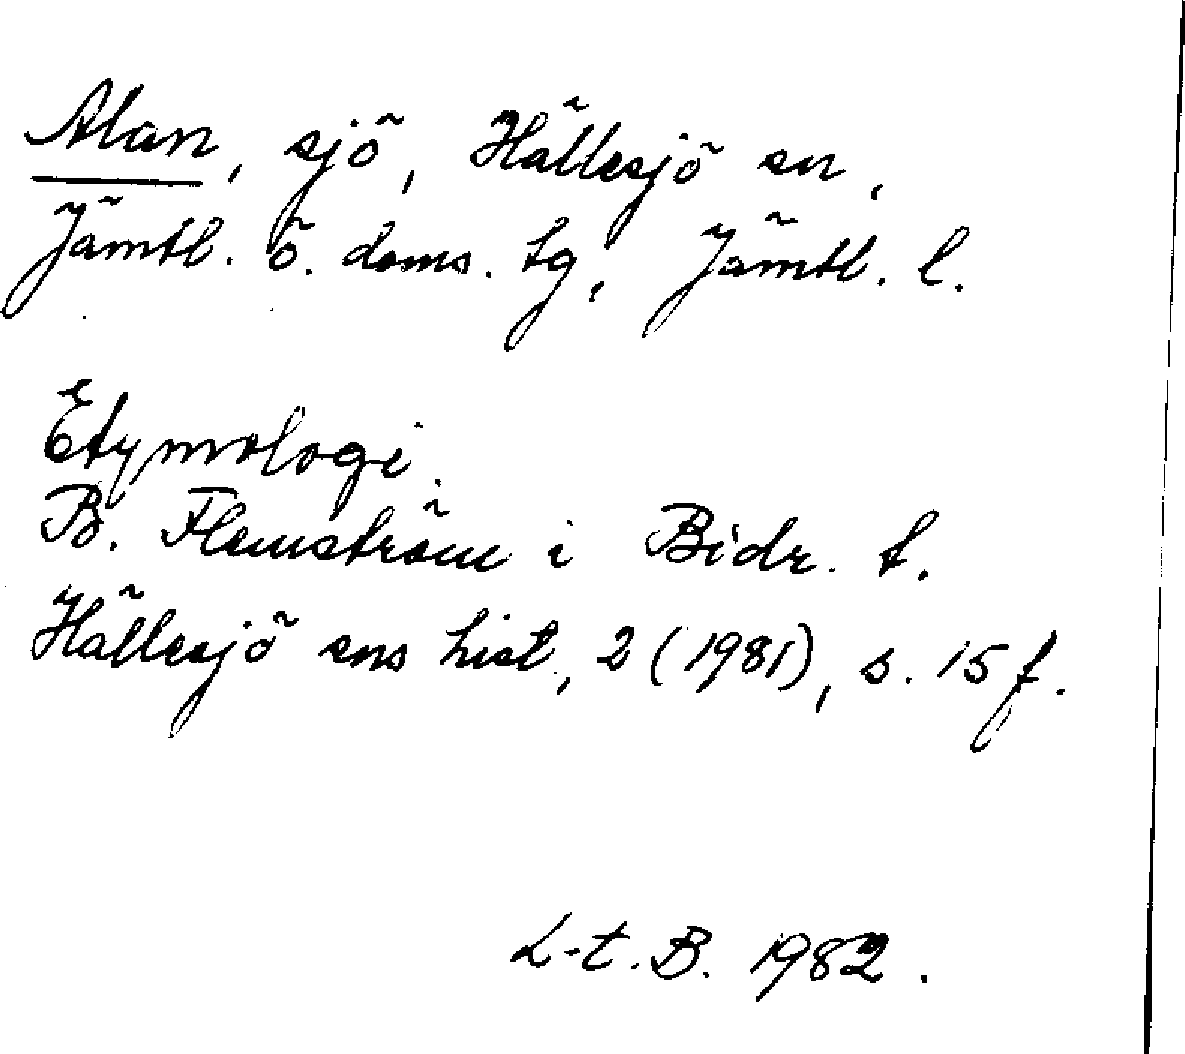 Alan, sjö, Hällesjö sn,
Jämtl. ö. doms. tg, Jämtl. l.
Etymologi.
B. Flemström i Bidr. t.
Hällesjö sns hist, 2 (1981), s. 15 f.
L-t. B. 1982.